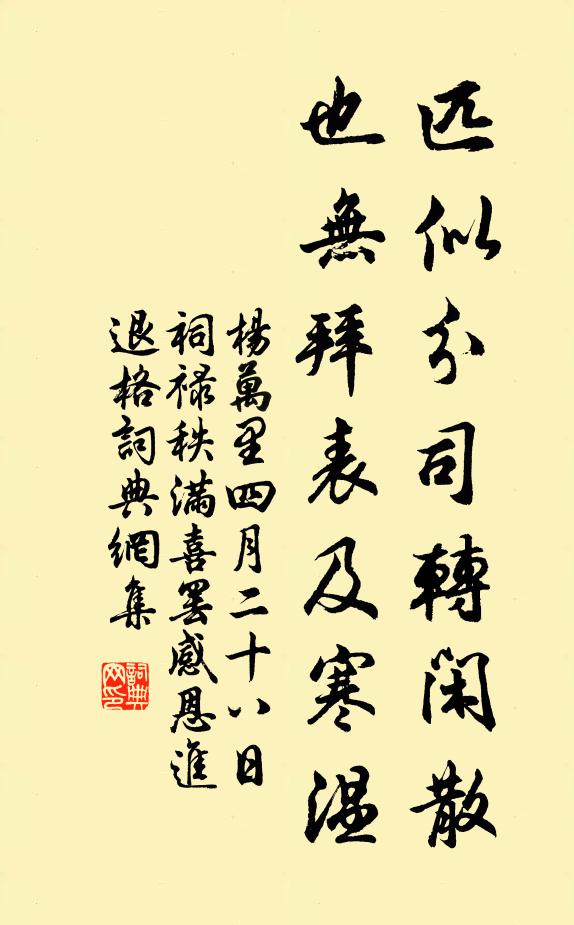 匹似分司轉閑散
也無拜表及寒温
楊萬里四月二十八日
祠禄秩滿喜罢感恩進
退格詞典網集
詞典网印